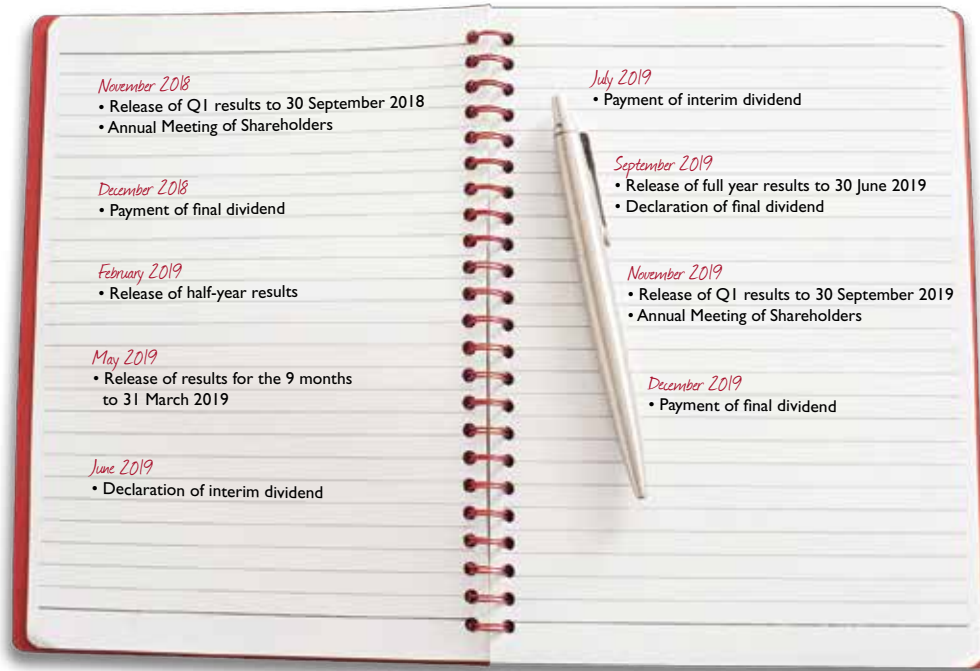 November 2018
• Release of Q1 results to 30 September 2018
• Annual Meeting of Shareholders
December 2018
• Payment of final dividend
February 2019
• Release of half-year results
May 2019
• Release of results for the 9 months
to 31 March 2019
June 2019
• Declaration of interim dividend
July 2019
• Payment of interim dividend
September 2019
• Release of full year results to 30 June 2019
• Declaration of final dividend
November 2019
• Release of Q1 results to 30 September 2019
• Annual Meeting of Shareholders
December 2019
• Payment of final dividend